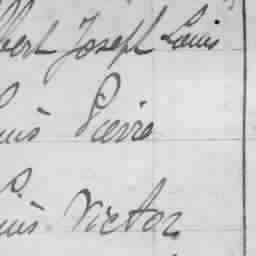 bert Joseph Louis
uis Pierre
uis Victor